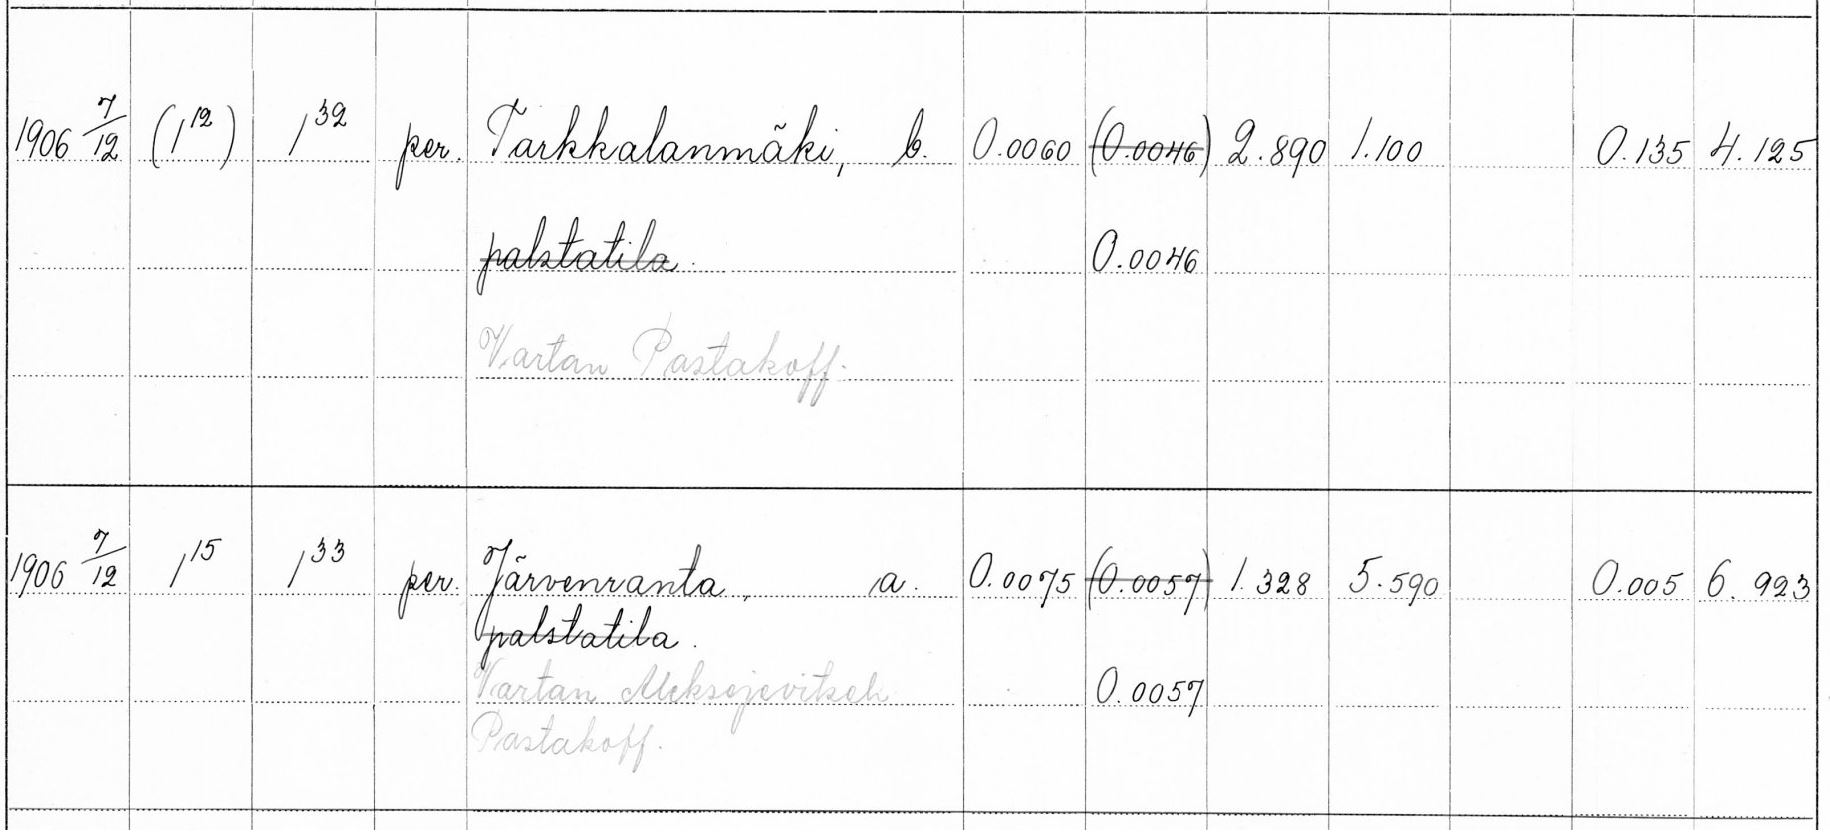 1906 7/12 (1¹²) 1³² per. Tarkkalanmäki, b. 0.0060 (0.0046) 2.890 1.100 0.135 4.125
palstatila. 0.0046
Vartan Pastakoff.
1906 7/12 1¹⁵ 1³³ per. Järvenranta, a. 0.0075 (0.0057) 1.328 5.590 0.005 6.923
palstatila.
Vartan Aleksejevitsch 0.0057
Pastakoff.